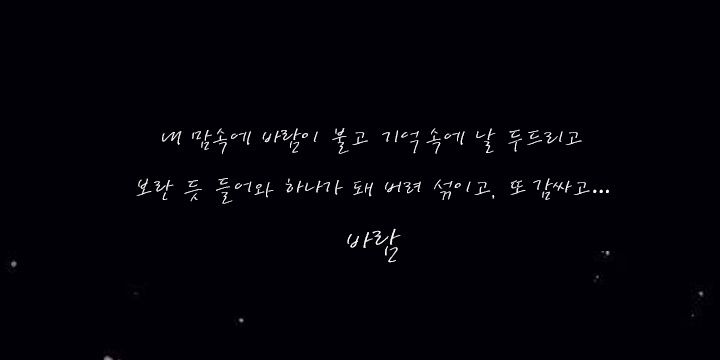 내 맘속에 바람이 불고 기억 속에 날 두드리고
보란 듯 들어와 하나가 돼 버려 섞이고, 또 감싸고...
바람